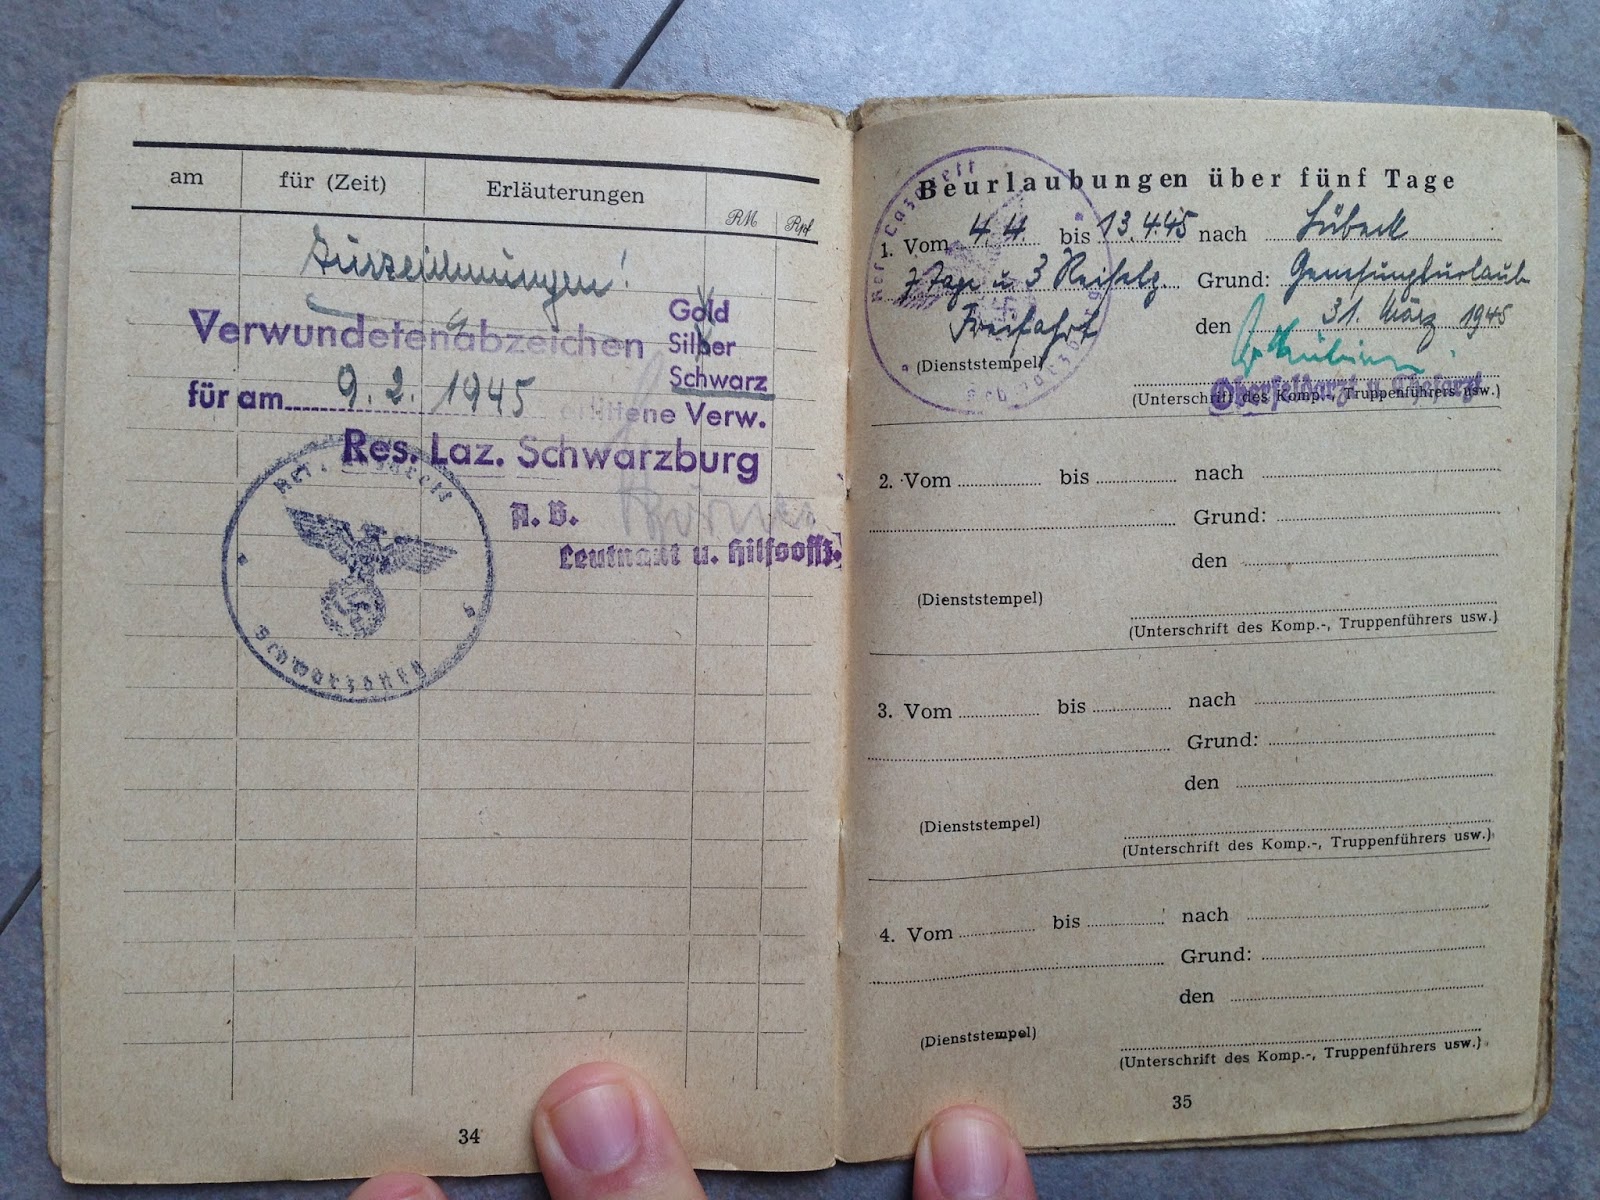 am für (Zeit) Erläuterungen RM Rpf
Auszeichnungen!
Verwundetenabzeichen
Gold
Silber
Schwarz
für am 9.2.1945 erlittene Verw.
Res. Laz. Schwarzburg
A. B.
Leutnant u. Hilfsoffz.
Res. Lazarett
Schwarzburg
34
Beurlaubungen über fünf Tage
1. Vom 4.4. bis 13.4.45 nach Lübeck
7 Tage u 3 Reisetg. Grund: Genesungsurlaub
Freifahrt den 31. März 1945
(Dienststempel)
(Unterschrift des Komp.-, Truppenführers usw.)
Oberfeldarzt u. Chefarzt
Res. Lazarett
Schwarzburg
2. Vom bis nach
Grund:
den
(Dienststempel)
(Unterschrift des Komp.-, Truppenführers usw.)
3. Vom bis nach
Grund:
den
(Dienststempel)
(Unterschrift des Komp.-, Truppenführers usw.)
4. Vom bis nach
Grund:
den
(Dienststempel)
(Unterschrift des Komp.-, Truppenführers usw.)
35